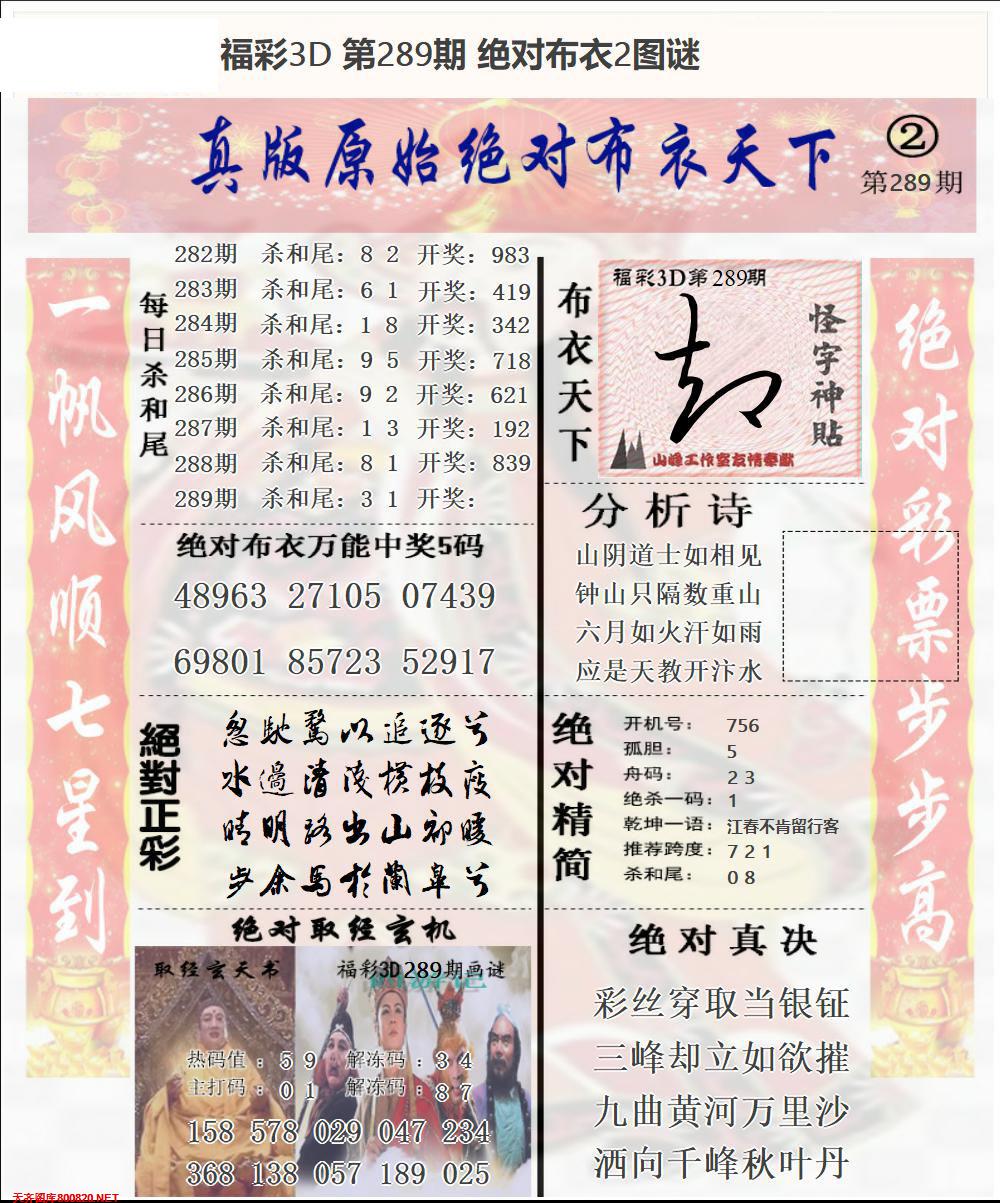 福彩3D 第289期 绝对布衣2图谜
真版原始绝对布衣天下
②
第289期
一帆风顺七星到
每日杀和尾
282期 杀和尾：8 2 开奖：983
283期 杀和尾：6 1 开奖：419
284期 杀和尾：1 8 开奖：342
285期 杀和尾：9 5 开奖：718
286期 杀和尾：9 2 开奖：621
287期 杀和尾：1 3 开奖：192
288期 杀和尾：8 1 开奖：839
289期 杀和尾：3 1 开奖：
绝对布衣万能中奖5码
48963 27105 07439
69801 85723 52917
絕對正彩
忽馳騖以追逐兮
水邊清淺橫枝瘦
晴明路出山初暖
步余馬於蘭皋兮
绝对取经玄机
取经玄天书
福彩3D289期画谜
热码值：5 9 解冻码：3 4
主打码：0 1 解冻码：8 7
158 578 029 047 234
368 138 057 189 025
布衣天下
福彩3D第289期
怪字神貼
山峰工作室友情奉献
分析诗
山阴道士如相见
钟山只隔数重山
六月如火汗如雨
应是天教开汴水
绝对精简
开机号： 756
孤胆： 5
舟码： 2 3
绝杀一码：1
乾坤一语：江春不肯留行客
推荐跨度：7 2 1
杀和尾： 0 8
绝对真决
彩丝穿取当银钲
三峰却立如欲摧
九曲黄河万里沙
洒向千峰秋叶丹
绝对彩票步步高
天齐图库800820.NET